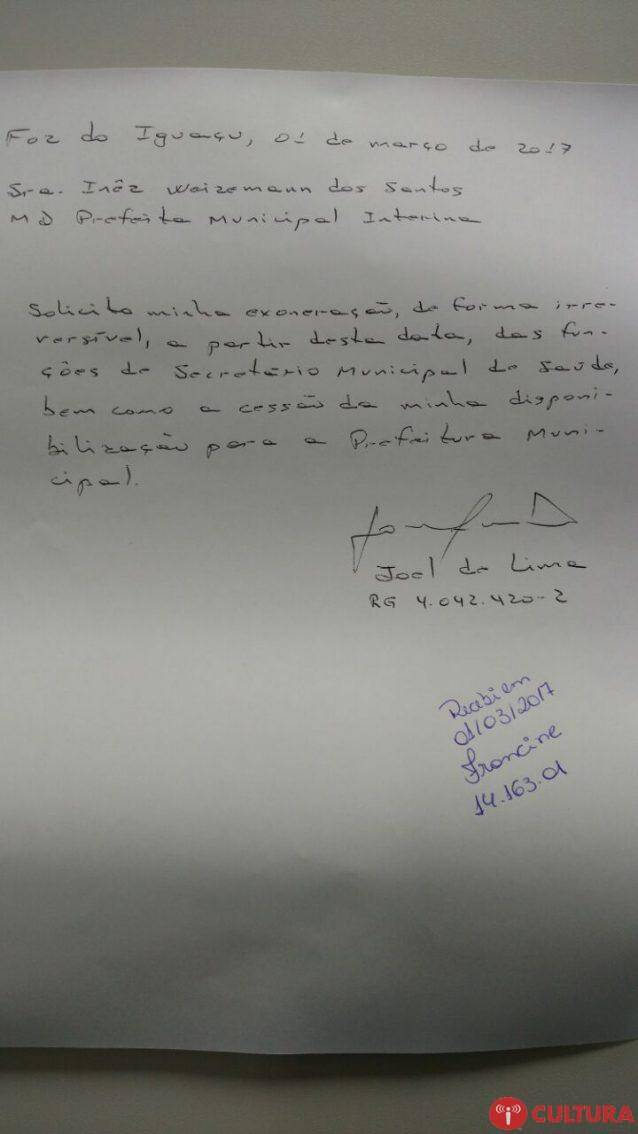 Foz do Iguaçu, 01 de março de 2017
Sra. Inêz Weizemann dos Santos
MD Prefeita Municipal Interina
Solicito minha exoneração, de forma irre-
versível, a partir desta data, das fun-
ções de Secretário Municipal de Saúde,
bem como a cessão da minha disponi-
bilização para a Prefeitura Muni-
cipal.
Joel de Lima
RG 4.042.420-2
Recebi em
01/03/2017
Francine
14.163.01
CULTURA